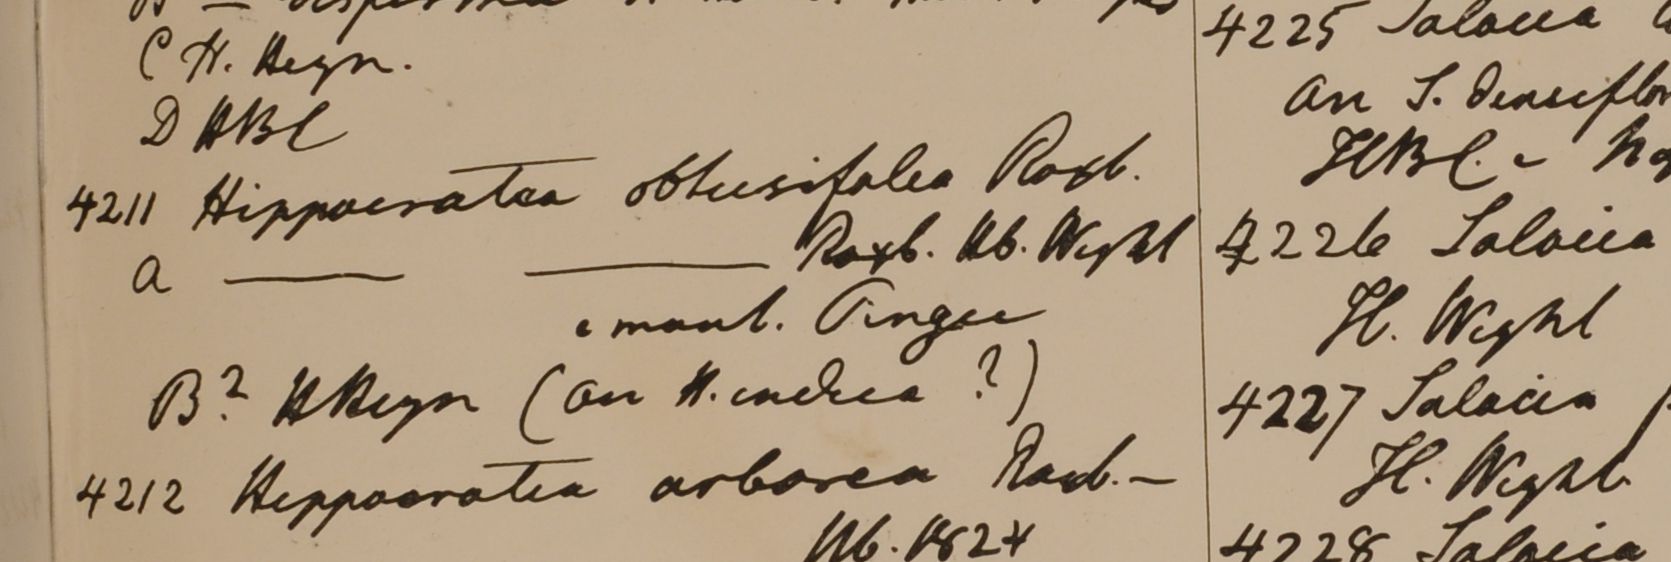 C H. Heyn.
D HBC
4211 Hippocratea obtusifolia Roxb.
a —— —— Roxb. Hb. Wight
e mont. Pingee
B? HHeyn (an H. indica ?)
4212 Hippocratea arborea Roxb. —
Hb. 1824
4225 Salacia
an S. densiflor
HBC.
4226 Salacia
H. Wight
4227 Salacia
H. Wight
4228 Salacia